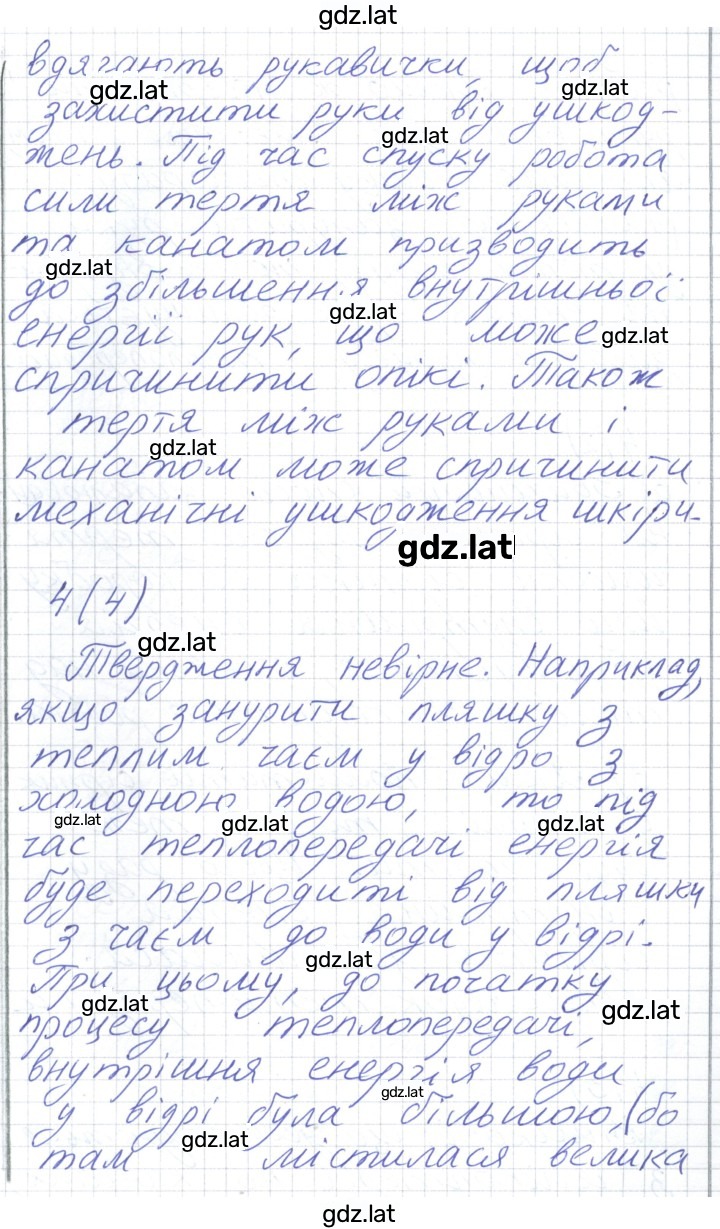 gdz.lat
вдягають рукавички, щоб
gdz.lat
gdz.lat
захистити руки від ушкод-
gdz.lat
жень. Під час спуску робота
сили тертя між руками
та канатом призводить
gdz.lat
до збільшення внутрішньої
gdz.lat
енергії рук, що може
gdz.lat
спричинити опікі. Також
тертя між руками і
gdz.lat
канатом може спричинити
механічні ушкодження шкіри.
gdz.lat
4(4)
gdz.lat
Твердження невірне. Наприклад,
якщо занурити пляшку з
теплим чаєм у відро з
холодною водою, то під
gdz.lat
gdz.lat
gdz.lat
час теплопередачі енергія
буде переходиті від пляшки
з чаєм до води у відрі.
gdz.lat
При цьому, до початку
gdz.lat
gdz.lat
процесу теплопередачі,
внутрішня енергія води
gdz.lat
у відрі була більшою, (бо
gdz.lat
там містилася велика
gdz.lat